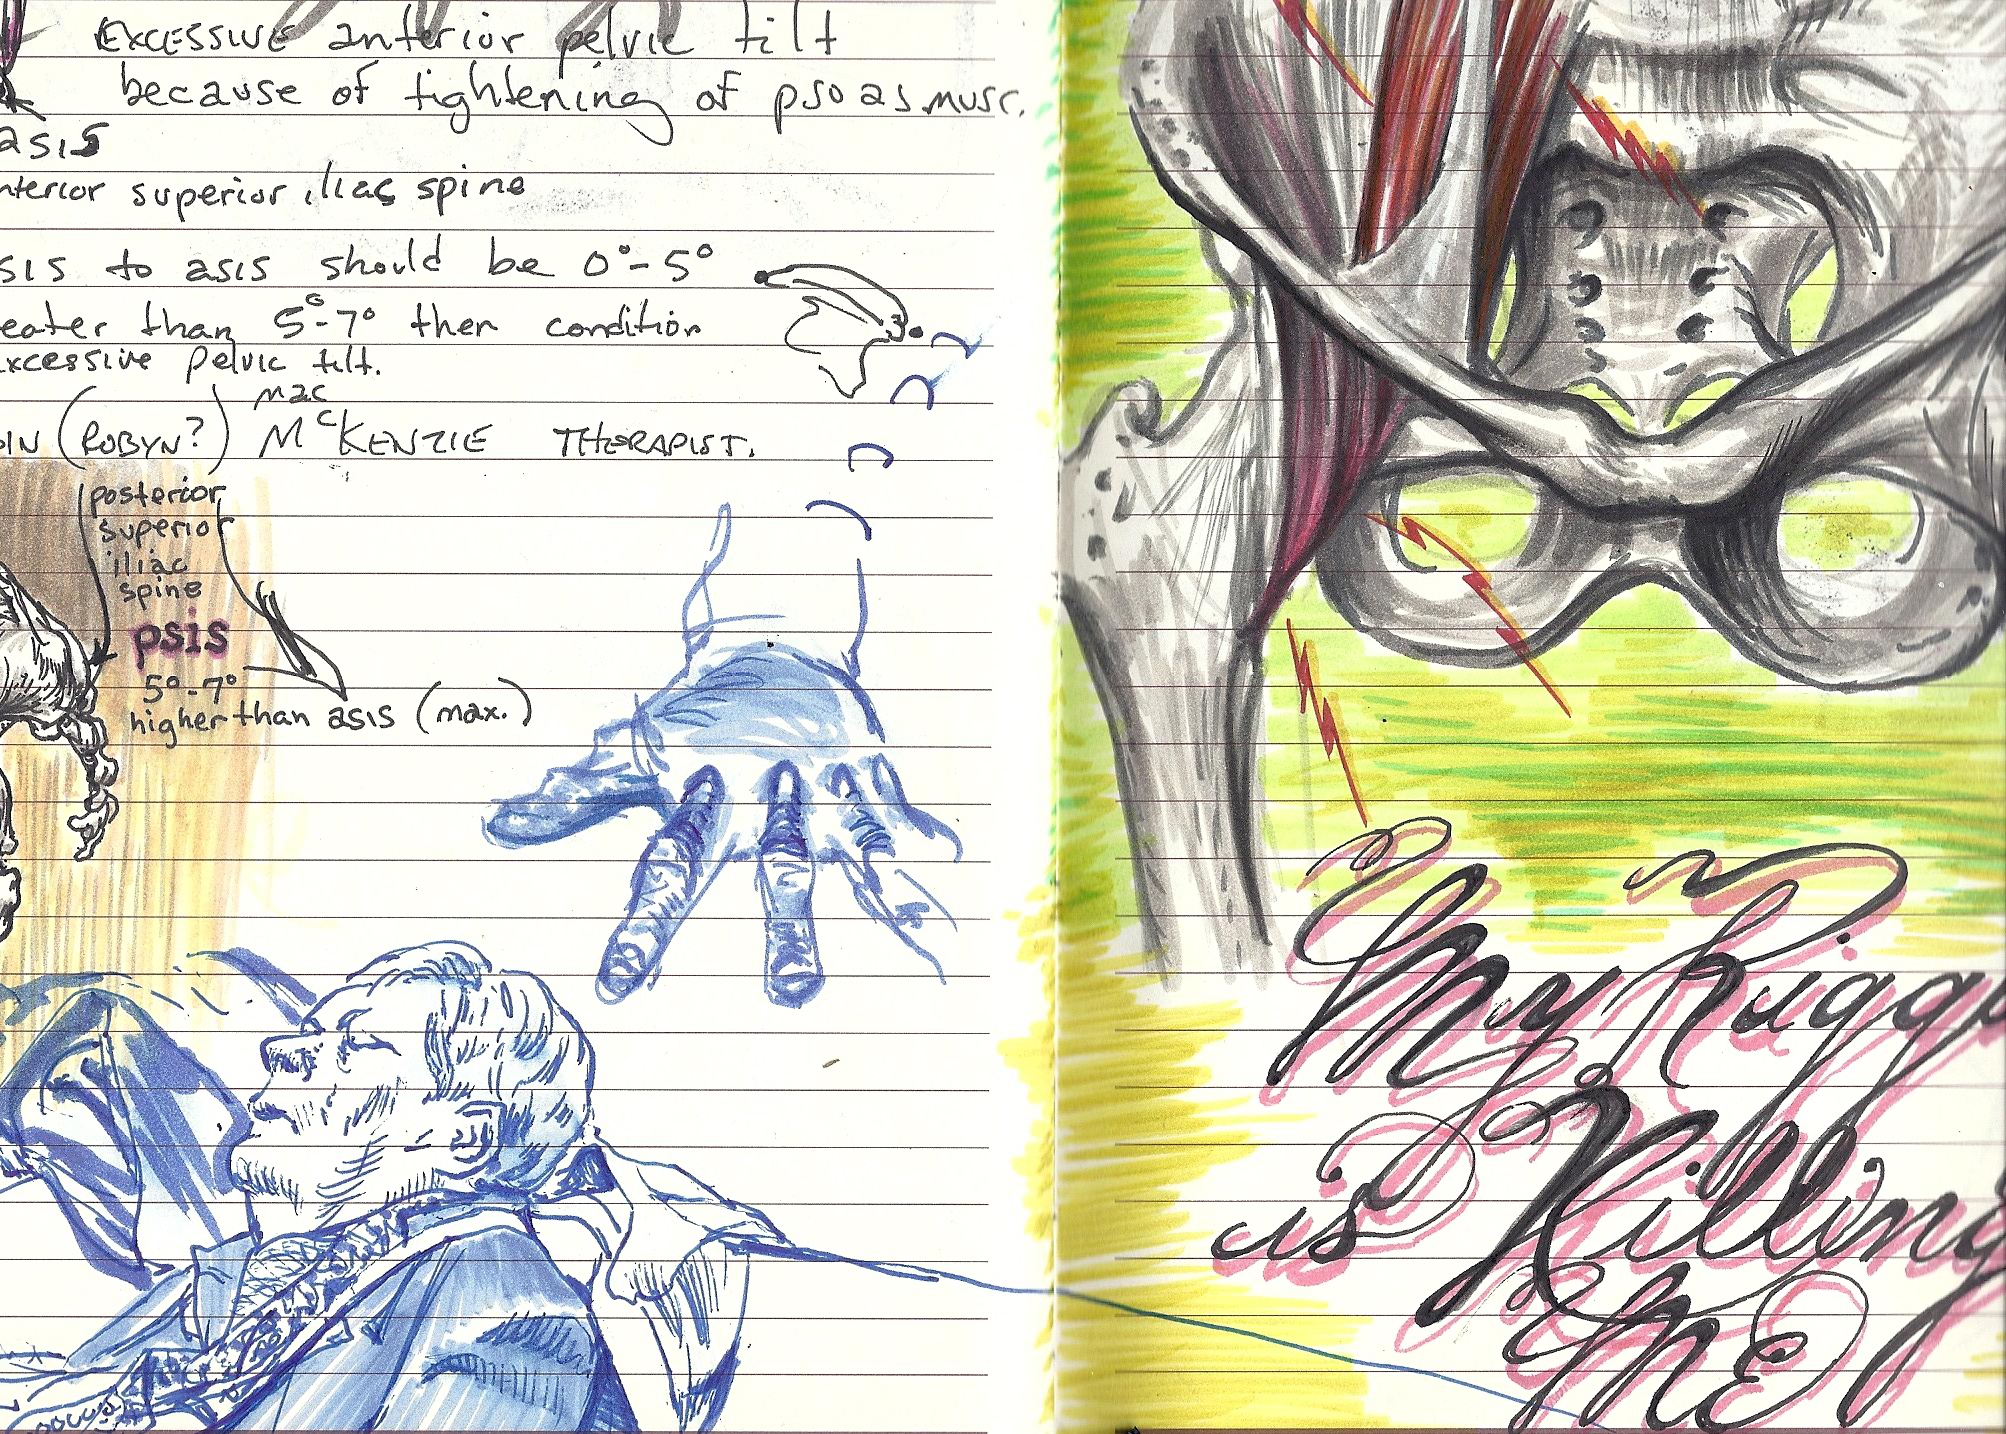 EXCESSIVE anterior pelvic tilt
because of tightening of psoas musc.
asis
nterior superior iliac spine
sis to asis should be 0°-5°
eater than 5°-7° then condition
xcessive pelvic tilt.
mac
(ROBYN?) McKENZIE THERAPIST.
posterior
superior
iliac
spine
psis
5°-7°
higher than asis (max.)
My Rigg
is Killing
Me